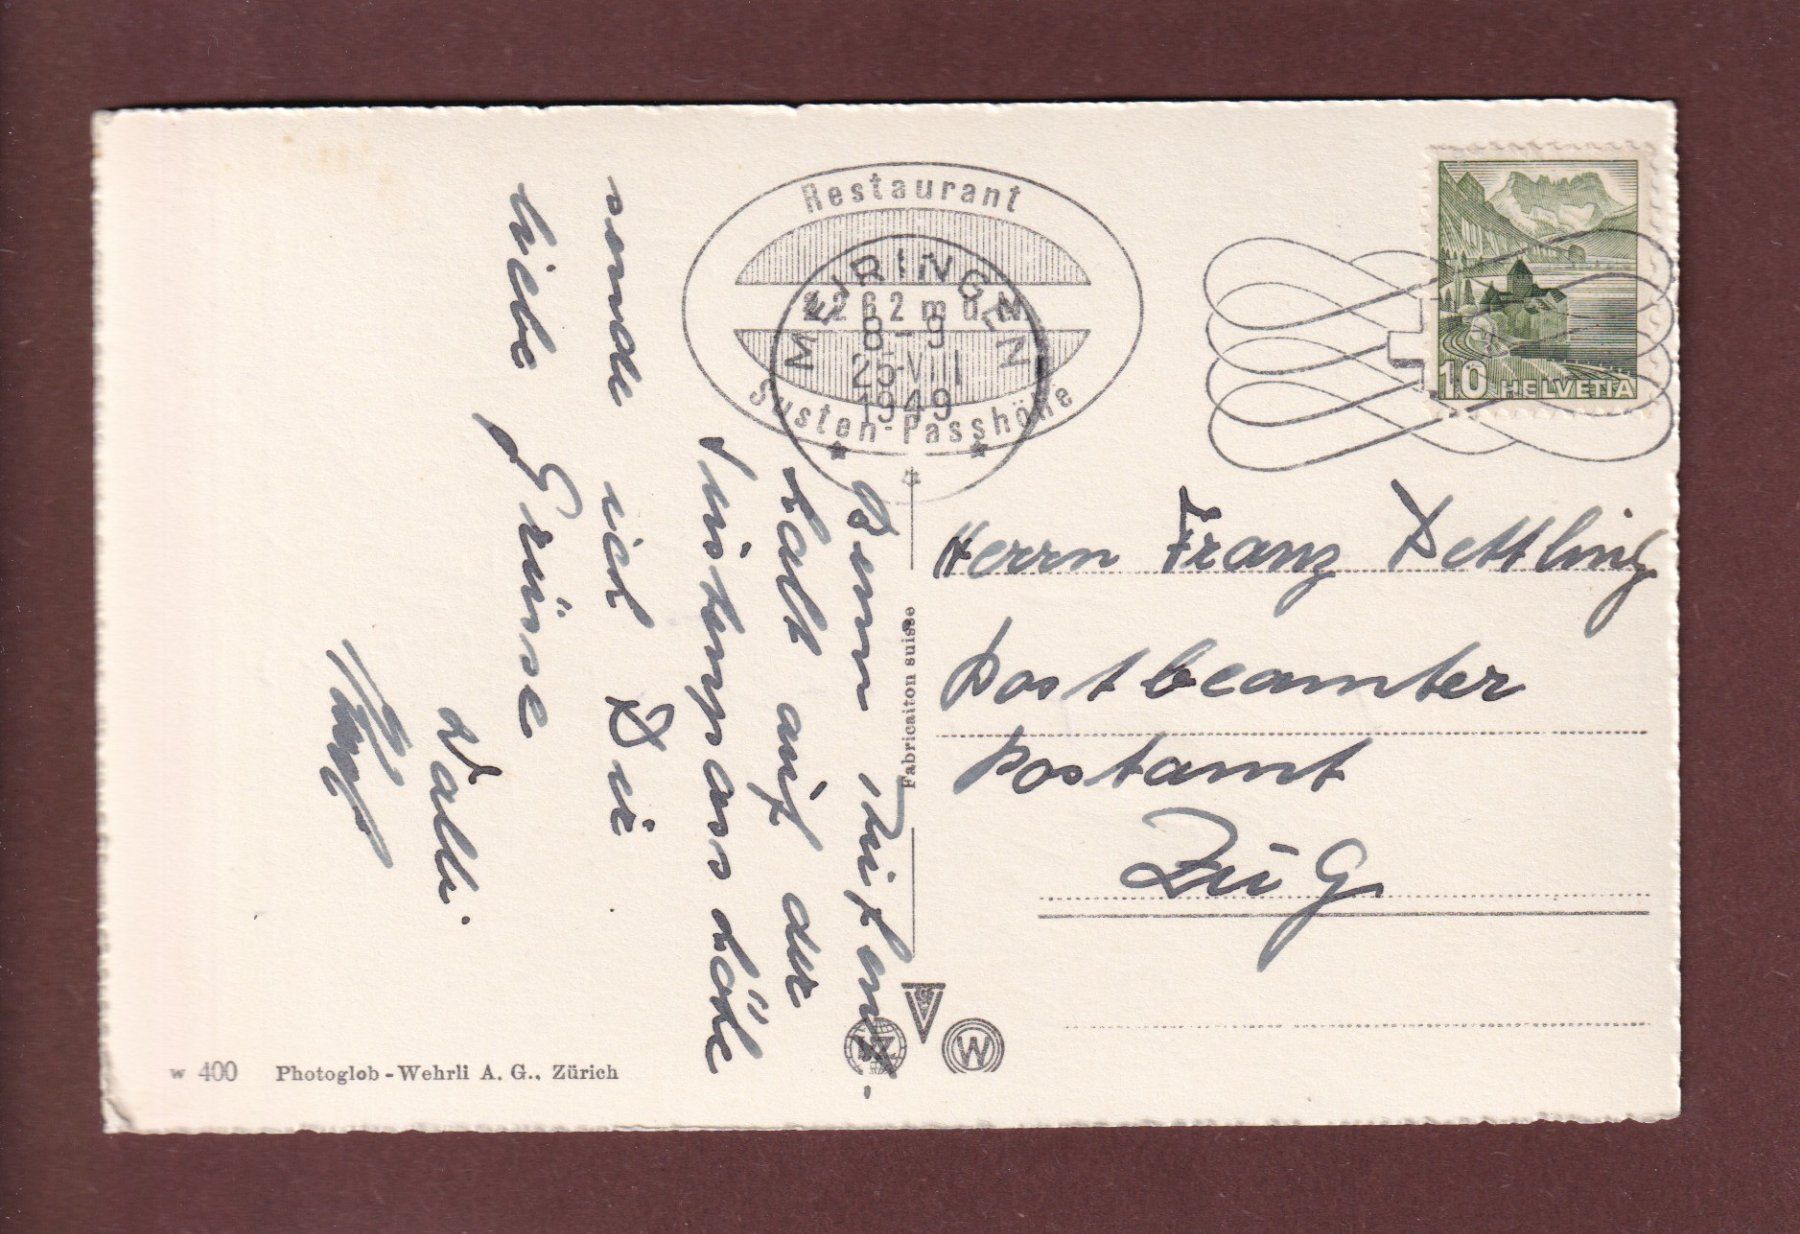 Restaurant
2262 m ü. M.
Susten-Passhöhe
MEIRINGEN
8-9
25·VIII
1949
10 HELVETIA
Beim
halt auf der
Sustenpasshöhe
sende ich Dir
liebe Grüsse
Walli
Herrn Franz Dettling
Postbeamter
Postamt
Zug
Fabricaiton suisse
W
w 400 Photoglob-Wehrli A. G., Zürich